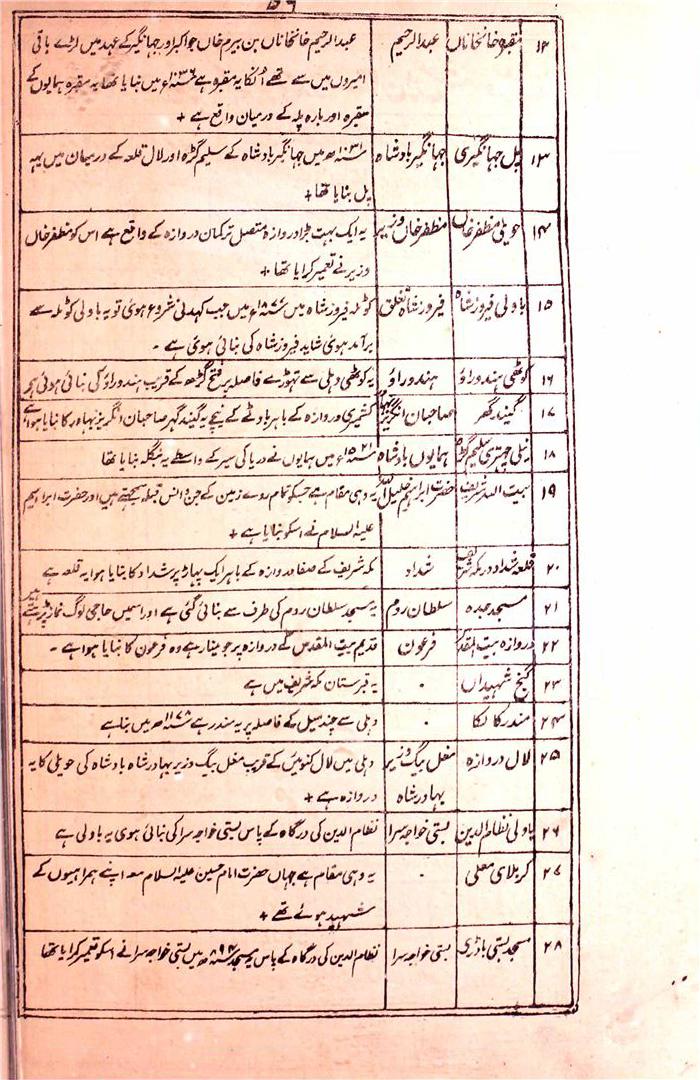 ۵۶
۱۲ مقبرہ خانخاناں عبدالرحیم عبدالرحیم خانخاناں بن بیرم خاں جو اکبر اور جہانگیر کے عہد میں لڑے باقی
امیروں میں سے تھے اُنکا یہ مقبرہ ہے ۱۰۳۶ میں بنایا تھا یہ مقبرہ ہمایوں کے
مقبرہ اور بارہ پلہ کے درمیان واقع ہے +
۱۳ پل جہانگیری جہانگیر بادشاہ ۱۰۳۱ھ میں جہانگیر بادشاہ کے سلیم گڑہ اور لال قلعہ کے درمیان میں یہہ
پل بنایا تھا +
۱۴ حویلی مظفر خاں مظفر خاں وزیر یہ ایک بہت بڑا دروازہ متصل ترکمان دروازہ کے واقع ہے اس کو مظفر خاں
وزیر نے تعمیر کرایا تھا +
۱۵ باولی فیروز شاہ فیروز شاہ تغلق کوٹلہ فیروز شاہ میں ۱۸۷۶ء میں جب کہدنی شروع ہوئی تو یہ باولی کوٹلہ سے
برآمد ہوئی شاید فیروز شاہ کی بنائی ہوئی ہے ۔
۱۶ کوٹھی ہندو راؤ ہندو راؤ یہ کوٹھی دہلی سے تہوڑے فاصلہ پر فتح گڑھ کے قریب ہندو راؤ کی بنائی ہوئی ہے
۱۷ گیند گھر صاحبان انگریز بہادر کشمیری دروازہ کے باہر باٹے کے نیچے یہ گیند گہر صاحبان انگریز بہادر کا بنایا ہوا ہے
۱۸ نیلی چہتری سلیم گڑہ ہمایوں بادشاہ میں ہمایوں نے دریا کی سیر کے واسطے یہ بنگلہ بنایا تھا
۱۹ بیت اللہ شریف حضرت ابراہیم خلیل اللہ یہ وہی مقام ہے جسکو تمام روے زمین کے جن و انس قبلہ سمجھتے ہیں اور حضرت ابراہیم
علیہ السلام نے اسکو بنایا ہے +
۲۰ قلعہ شداد در مکہ شریف شداد مکہ شریف کے صفا دروازہ کے باہر ایک پہاڑ پر شداد کا بنایا ہوا یہ قلعہ ہے
۲۱ مسجد جدہ سلطان روم یہ مسجد سلطان روم کی طرف سے بنائی گئی ہے اور اسمیں حاجی لوگ نماز پڑہتے ہیں
۲۲ دروازہ بیت المقدس فرعون قدیم بیت المقدس کے دروازہ پر جو مینار ہے وہ فرعون کا بنایا ہوا ہے ۔
۲۳ گنج شہیداں ۰ یہ قبرستان مکہ شریف میں ہے
۲۴ مندر کالکا ۰ دہلی سے چند میل کے فاصلہ پر یہ مندر ہے ۱۱۷۸ھ میں بنا ہے
۲۵ لال دروازہ مغل بیگ وزیر دہلی میں لال کنوئیں کے قریب مغل بیگ وزیر بہادر شاہ بادشاہ کی حویلی کا یہ
بہادر شاہ دروازہ ہے +
۲۶ باولی نظام الدین بستی خواجہ سرا نظام الدین کی درگاہ کے پاس بستی خواجہ سرا کی بنائی ہوئی یہ باولی ہے
۲۷ کربلای معلی ۰ یہ وہی مقام ہے جہاں حضرت امام حسین علیہ السلام معہ اپنے ہمراہیوں کے
شہید ہوئے تھے +
۲۸ مسجد بستی باوڑی بستی خواجہ سرا نظام الدین کی درگاہ کے پاس یہ مسجد ۸۹۴ھ میں بستی خواجہ سرا نے اسکو تعمیر کرایا تھا